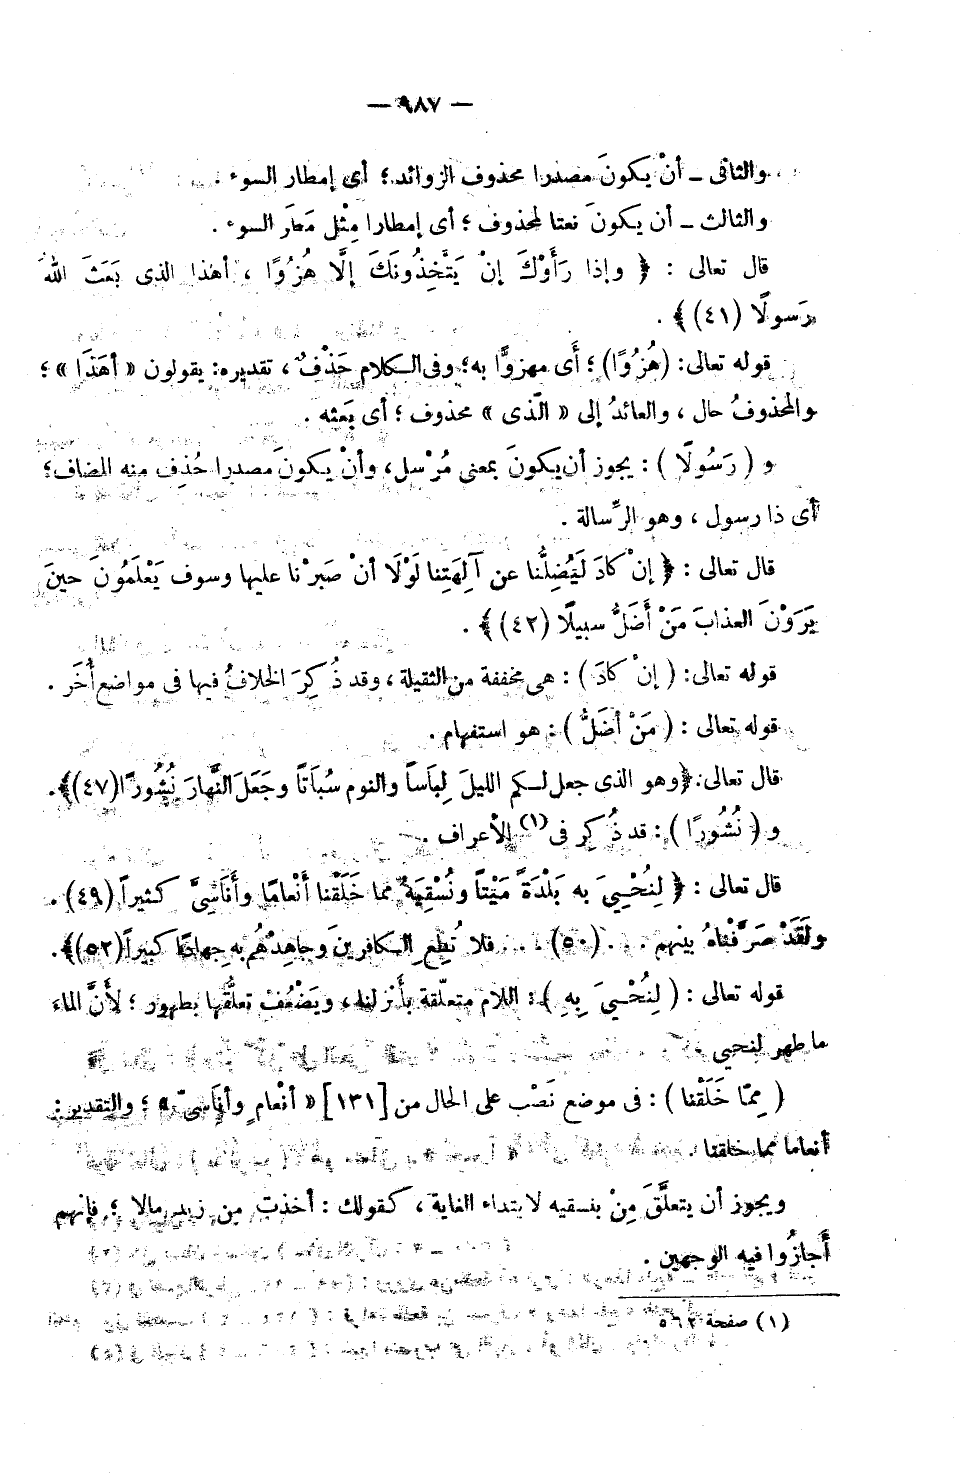 — ٩٨٧ —
والثانى ــ أنْ يكونَ مصدرا محذوف الزوائد؛ أى إمطار السوء .
والثالث ــ أن يكونَ نعتا لمحذوف ؛ أى إمطارا مِثْل مَطَر السوء .
قال تعالى : ﴿ وإذا رَأَوْكَ إنْ يَتَّخِذُونَكَ إلَّا هُزُوًا ، أهٰذا الذى بَعَثَ اللهُ
رَسولًا (٤١) ﴾ .
قوله تعالى : (هُزُوًا) ؛ أَى مهزوًّا به؛ وفى الكلام حَذْفٌ ، تقديره: يقولون « أهَذَا » ؛
والمحذوفُ حال ، والعائدُ إلى « الّذى » محذوف ؛ أى بَعثه .
و ( رَسُولًا ) : يجوز أن يكونَ بمعنى مُرْسل، وأنْ يكونَ مصدرا حُذِف منه المضاف؛
أى ذا رسول ، وهو الرِّسالة .
قال تعالى : ﴿ إنْ كادَ لَيُضِلُّنا عن آلِهَتِنا لَوْلَا أنْ صَبرْنا عليها وسوف يَعْلَمُونَ حينَ
يَرَوْنَ العذابَ مَنْ أَضَلُّ سبيلًا (٤٢) ﴾ .
قوله تعالى: ( إنْ كادَ ) : هى مخففة من الثقيلة ، وقد ذُكِرَ الخلافُ فيها فى مواضع أُخَر .
قوله تعالى : ( مَنْ أضَلُّ ) : هو استفهام .
قال تعالى: ﴿وهو الذى جعل لكم الليلَ لِبَاساً والنوم سُبَاتاً وجَعَلَ النَّهارَ نُشُورًا (٤٧)﴾.
و ( نُشُورًا ) : قد ذُكِر فى (١) الأعراف .
قال تعالى : ﴿ لِنُحْيِيَ به بَلْدَةً مَيْتاً ونُسْقِيَهُ مما خَلَقْنا أَنْعامًا وأَنَاسِىَّ كثيراً (٤٩) .
ولَقَدْ صَرَّفْناهُ بينهم . . . (٥٠) . . . فلا تُطِعِ الكافرينَ وجاهِدْهُم به جِهادًا كبيراً (٥٢)﴾.
قوله تعالى : ( لِنُحْيِيَ بِهِ ) : اللام متعلّقة بأنزلنا، ويَضْعُف تعلُّقها بطهور ؛ لأَنَّ الماء
ما طهر لنحيى
( مِمّا خَلَقْنا ) : فى موضع نَصْب على الحال من [١٣١] « أنْعامٍ وأنَاسىّ » ؛ والتقدير :
أنعاما مما خلقنا .
ويجوز أن يتعلَّقَ مِنْ بنسقيه لابتداء الغاية ، كقولك : أخذت من زيد مالا ؛ فإنهم
أَجازُوا فيه الوجهين .
(١) صفحة ٥٦٢